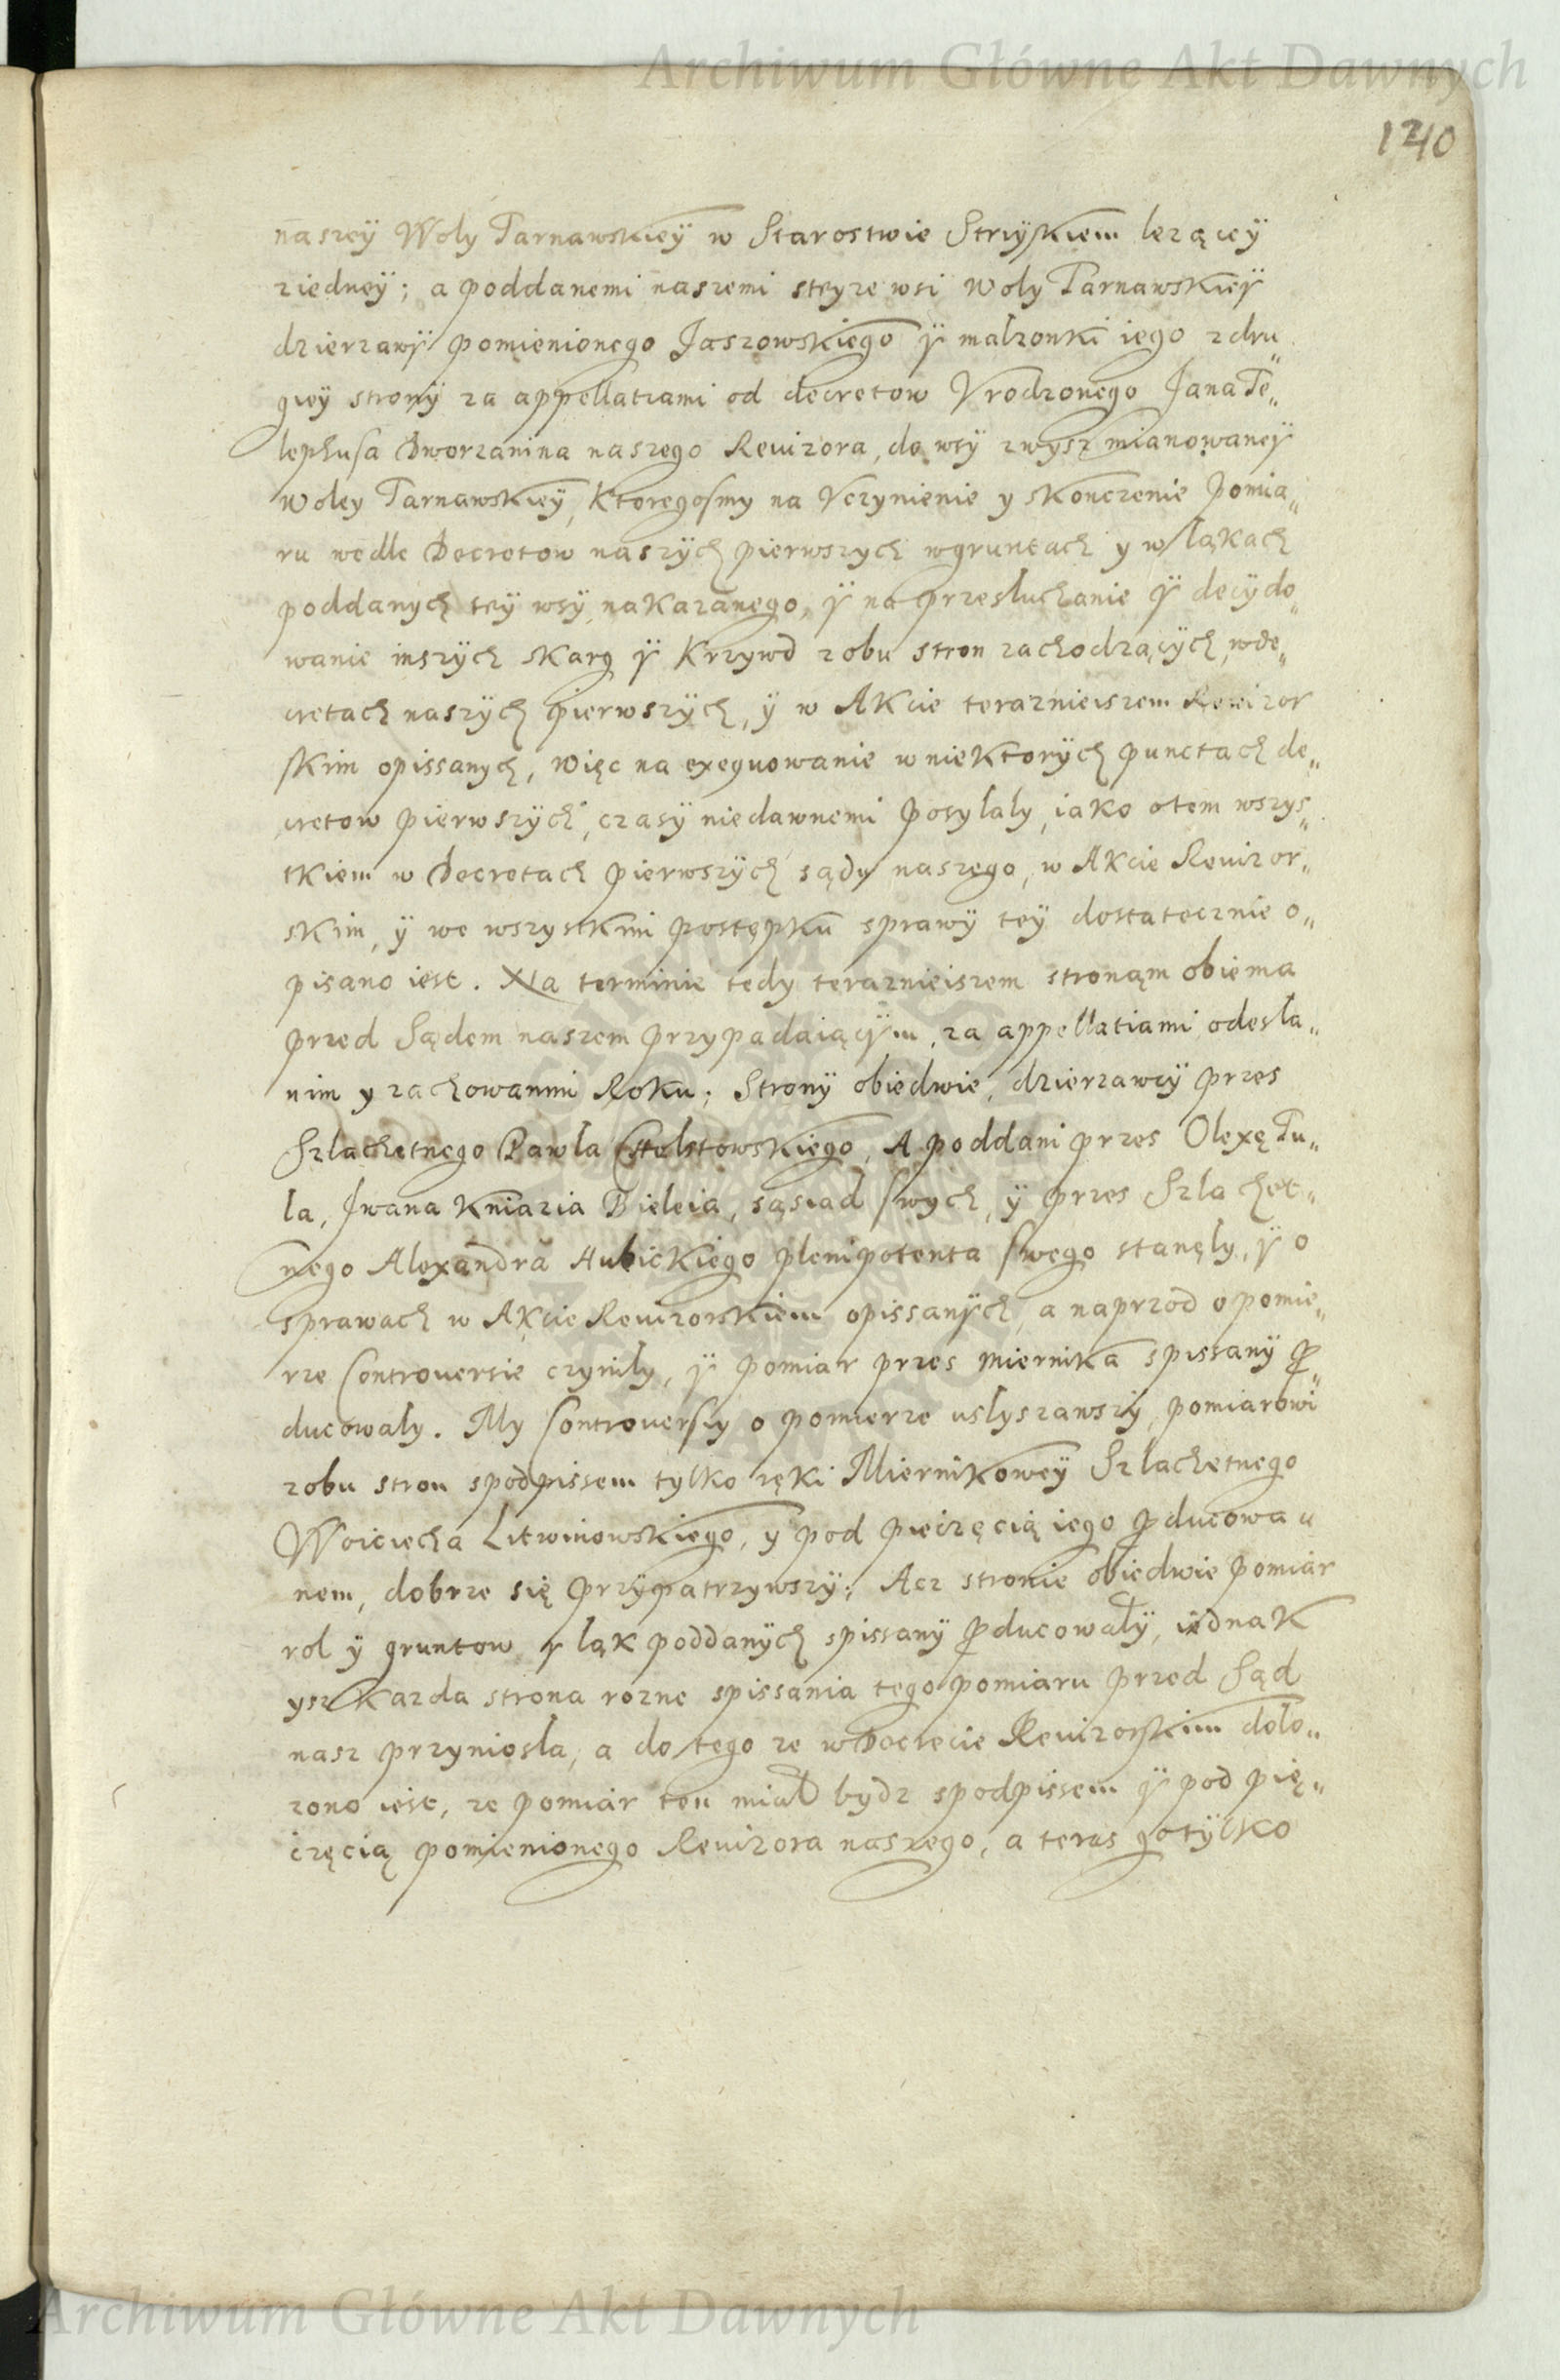 Archiwum Główne Akt Dawnych
1240
naszeÿ Woly Tarnawskieÿ w Starostwie Striÿskiem lezącÿ
ziedneÿ; a poddanemi naszemi steyze wsi Woly Tarnawskieÿ
dzierzawÿ pomienionego Jaszowskiego ÿ malzonki iego zdru„
giey stronÿ za appellatiami od decretow Vrodzonego Jana Te„
lephusa Dworzanina naszego Reuizora, do wsÿ zwysz mianowaneÿ
woley Tarnawskieÿ, Ktoregosmy na Vczynienie y skonczenie Pomia„
ru wedle Decretow naszÿch pierwszych wgruntach y w łąkach
poddanych teÿ wsÿ nakazanego, ÿ na przesłuchanie ÿ decÿdo„
wanie inszÿch skarg ÿ Krzywd zobu stron zachodzącÿch, wde„
cretach naszÿch pierwszÿch, ÿ w AKcie terazniejszem Rewizor
skim opissanych, więc na exequowanie w niektorÿch punctach de„
cretow pierwszÿch, czasÿ niedawnemi posylaly, iako otem wszys„
tkiem w Decretach pierwszÿch sądu naszego, w AKcie Reuizor„
skim, ÿ we wszystkimi postępku sprawÿ teÿ dostatecznie o„
pisano iest. Na terminie tedy terazniejszem stronąm obiema
przed Sądem naszem przypadaiącÿm, za appellatiami odesła„
nim y zachowanmi Roku; Stronÿ obiedwie, dzierzawcÿ przes
Szlachetnego Pawla, A poddani przes Olexę Tu„
la, Jwana Kniazia Bieleia, sąsiad swych, ÿ przes Szlachet„
nego Alexandra Hubickiego plenipotenta swego stanęly, ÿ o
sprawach w AKcie Reuizorskiem opissanÿch, a naprzod o pomie„
rze Controuersie czyniły, ÿ pomiar przes miernika spissanÿ ꝓ„
ducowaly. My Controuersiy o pomierze uslyszawszÿ, pomiarowi
zobu stron spodpissem tylko ręki MierniKoweÿ Szlachetnego
Woiciecha Litwinowskiego, y pod pieczęcią iego ꝓducowa„
nem, dobrze się przÿpatrzywszÿ; Acz stronie obiedwie pomiar
rol ÿ gruntow y ląk poddanÿch spissanÿ ꝓducowałÿ, iednaK
ysz kazda strona rozne spissania tego pomiaru przed Sąd
nasz przyniosla, a do tego ze w Decrecie Reuizorskim doło„
zono iest, ze pomiar ten miał bydz spodpissem ÿ pod pię„
częcią pomienionego Reuizora naszego, a teras go tÿlko
Archiwum Główne Akt Dawnych